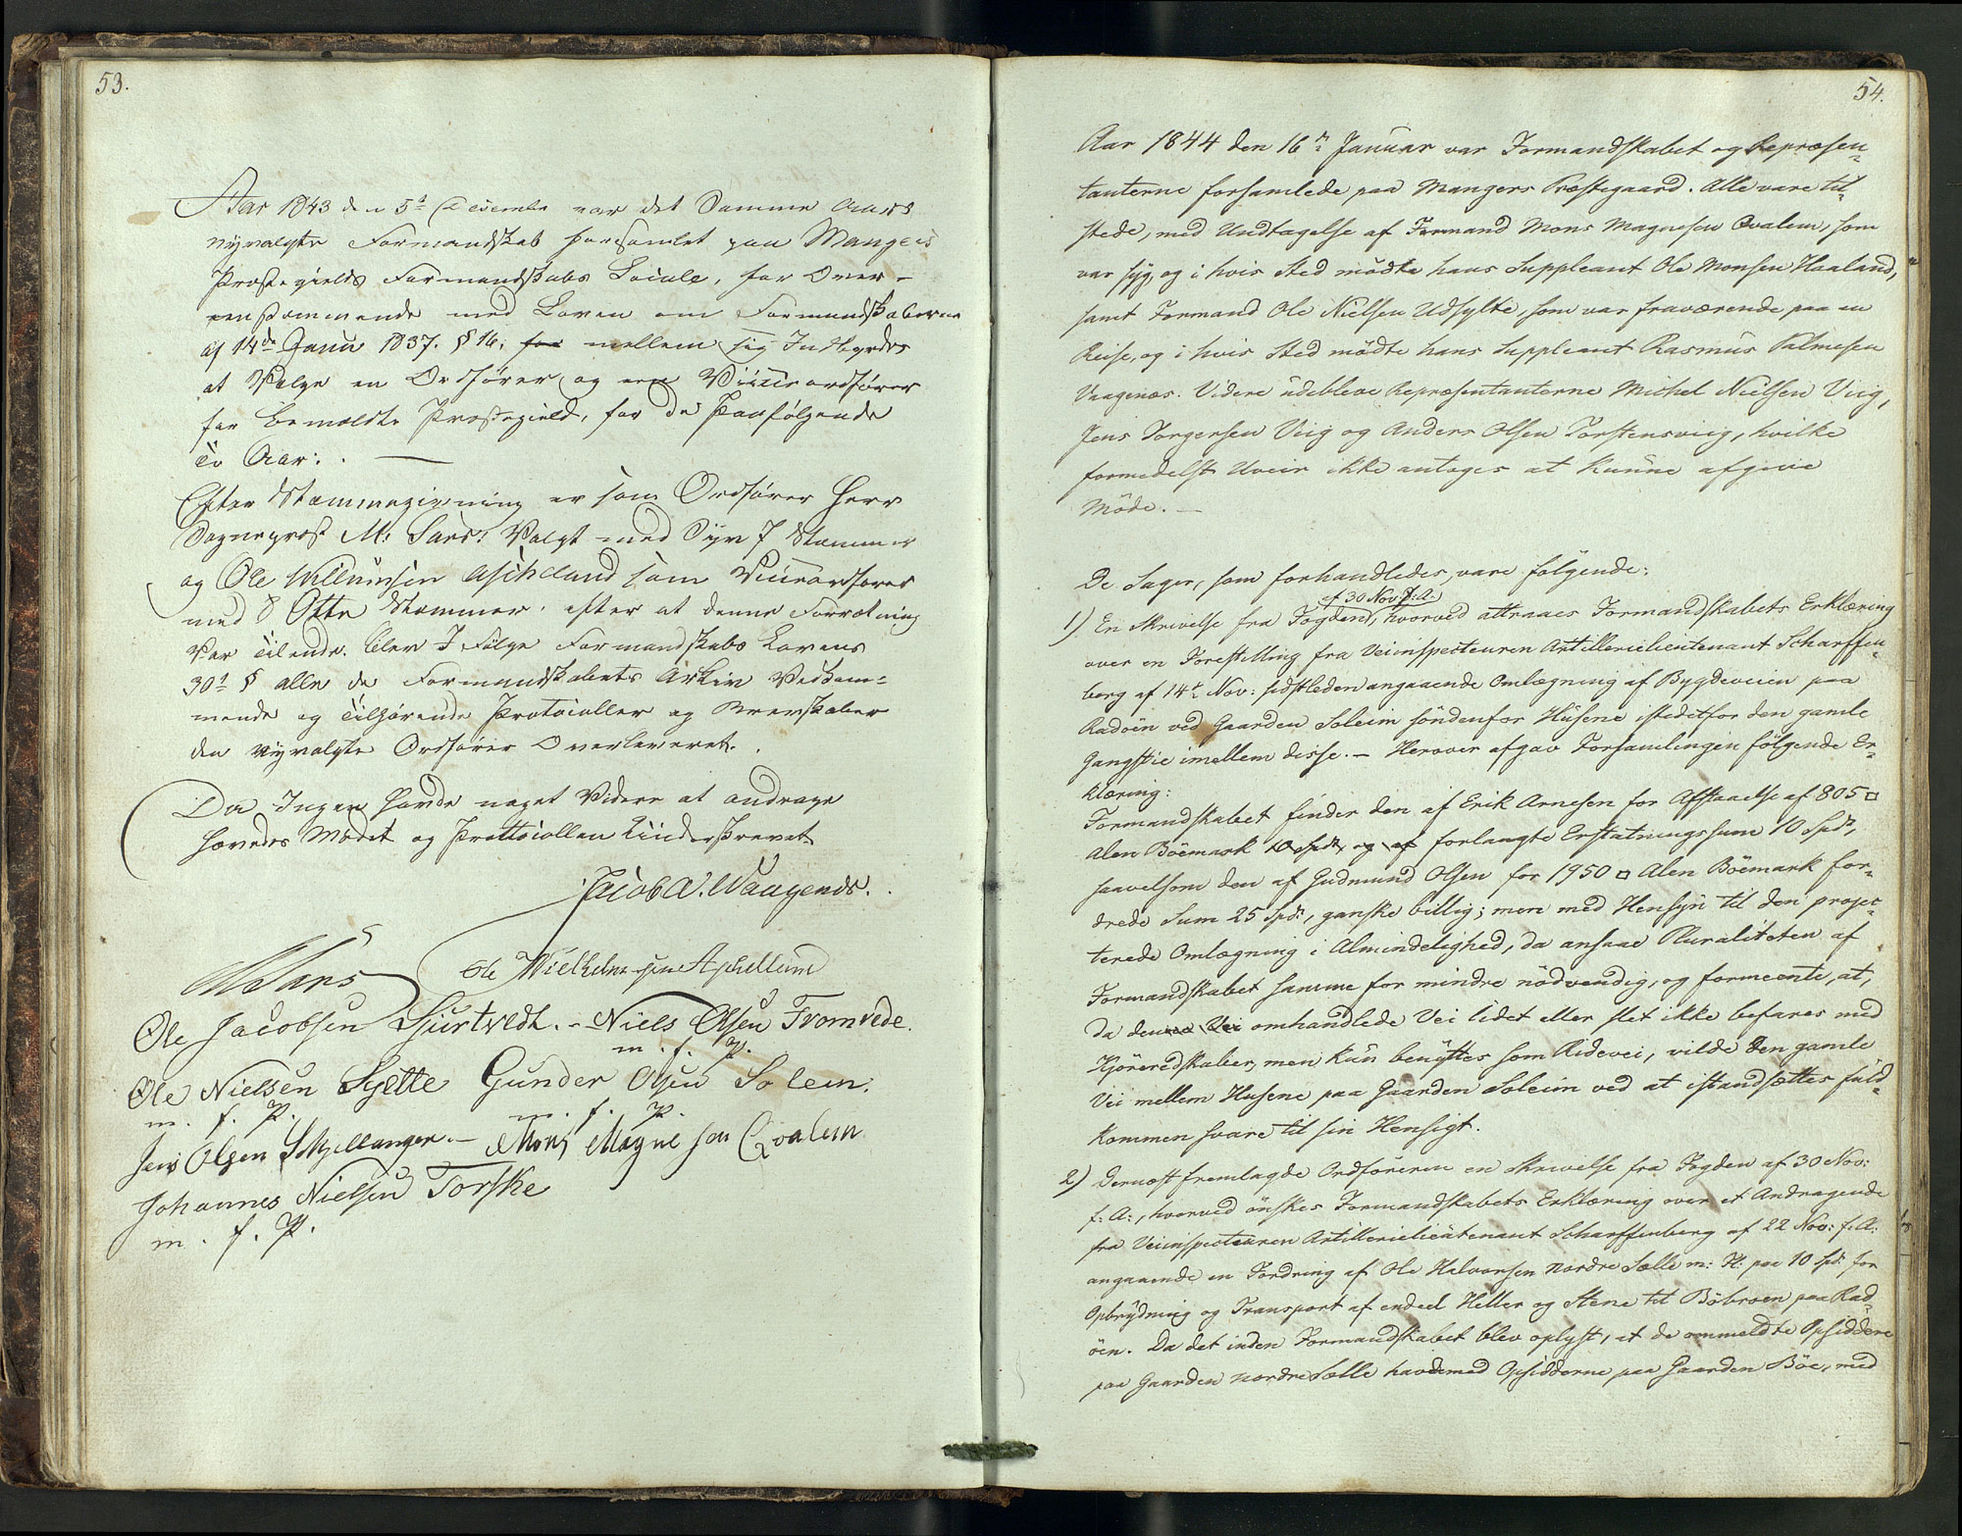 53.
Aar 1843 den 5t December var det Samme Aars
nyvalgte Formandskab forsamlet paa Mangers
Præstegields Formandskabs Locale, for Over-
eenstemmende med Loven om Formandskaberne
af 14de Janu 1837. § 16, for mellem sig Indbyrdes
at Vælge en Ordfører og een Viceordfører
for bemældte Præstegield, for de paafølgende
to Aar. . —
Efter Stemmegivning er som Ordfører Herr
Sognepræst M: Sars: Valgt med Syv 7 Stemmer
og Ole Willumsen Ascheland som Viceordfører
med 8 Otte Stemmer. efter at denne Forretning
Var tilende. blev I Følge Formandskabs Lovens
30t § alle de Formandskabets Arkiv Vedkom-
mende og tilhørende Protocoller og Brevskaber
den nyvalgte Ordfører Overleveret. .
Da Ingen havde noget Videre at andrage
hævedes Mødet og Prottocollen Underskrevet.
Jacob A. Waagenæs. .
MSars
Ole Wilhelmsen Aschelland
Ole Jacobsen Hjurtvedt. - Niels Olsen Fromrede.
m. f. P.
Ole Nielsen Sylte Gunder Olsen Solem.
m. f. P. m. f. P.
Jens Olsen Skjellanger. - Mons Magnesen Qvalem
Johannes Nielsen Torske
m. f. P.
54.
Aar 1844 den 16de Januar var Formandskabet og Repræsen-
tanterne forsamlede paa Mangers Præstegaard. Alle vare til-
stede, med Undtagelse af Formand Mons Magnesen Qvalem, som
var syg, og i hvis Sted mödte hans Suppleant Ole Monsen Haaland,
samt Formand Ole Nielsen Udsylte, som var fraværende paa en
Reise, og i hvis Sted mödte hans Suppleant Rasmus Salmesen
Vaagenæs. Videre udebleve Repræsentanterne Michel Nielsen Viig,
Jens Torgersen Viig og Anders Olsen Torstensviig, hvilke
formedelst Uveir ikke antoges at kunne afgive
Möde. —
De Sager, som forhandledes, vare fölgende:
af 30 Nov: f: A:
1) En Skrivelse fra Fogden, hvorved attraaes Formandskabets Erklæring
over en Forestilling fra Veiinspecteuren Artillerielieutenant Scharffen-
berg af 14de Nov: sidstleden angaaende Omlægning af Bygdeveien paa
Radöen ved Gaarden Soleim söndenfor Husene istedetfor den gamle
Gangstie imellem disse. — Herover afgav Forsamlingen fölgende Er-
klæring:
Formandskabet finder den af Erik Arnesen for Afstaaelse af 805 □
Alen Böemark 10 Spdr, og af forlangte Erstatningssum 10 Spdr,
saavelsom den af Gudmund Olsen for 1950 □ Alen Böemark for-
drede Sum 25 Spdr, ganske billig; men med Hensyn til den projec-
terede Omlægning i Almindelighed, da ansaae Pluraliteten af
Formandskabet samme for mindre nödvendig, og formeente, at,
da denne Vei omhandlede Vei lidet eller slet ikke befares med
Kjöreredskaber, men kun benyttes som Ridevei, vilde den gamle
Vei mellem Husene paa Gaarden Soleim ved at istandsættes fuld-
kommen svare til sin Hensigt.
2) Dernæst fremlagde Ordföreren en Skrivelse fra Fogden af 30 Nov:
f: A:, hvorved önskes Formandskabets Erklæring over et Andragende
fra Veiinspecteuren Artillerielieutenant Scharffenberg af 22 Nov: f: A:
angaaende en Fordring af Ole Halvorsen Nordre Sælle m: Fl: paa 10 Spd: for
Opbrydning og Transport af endeel Heller og Stene til Böbroen paa Rad-
öen. Da det inden Formandskabet blev oplyst, at de ommeldte Opsiddere
paa Gaarden Nordre Sælle havde med Opsidderne paa Gaarden Böe, med